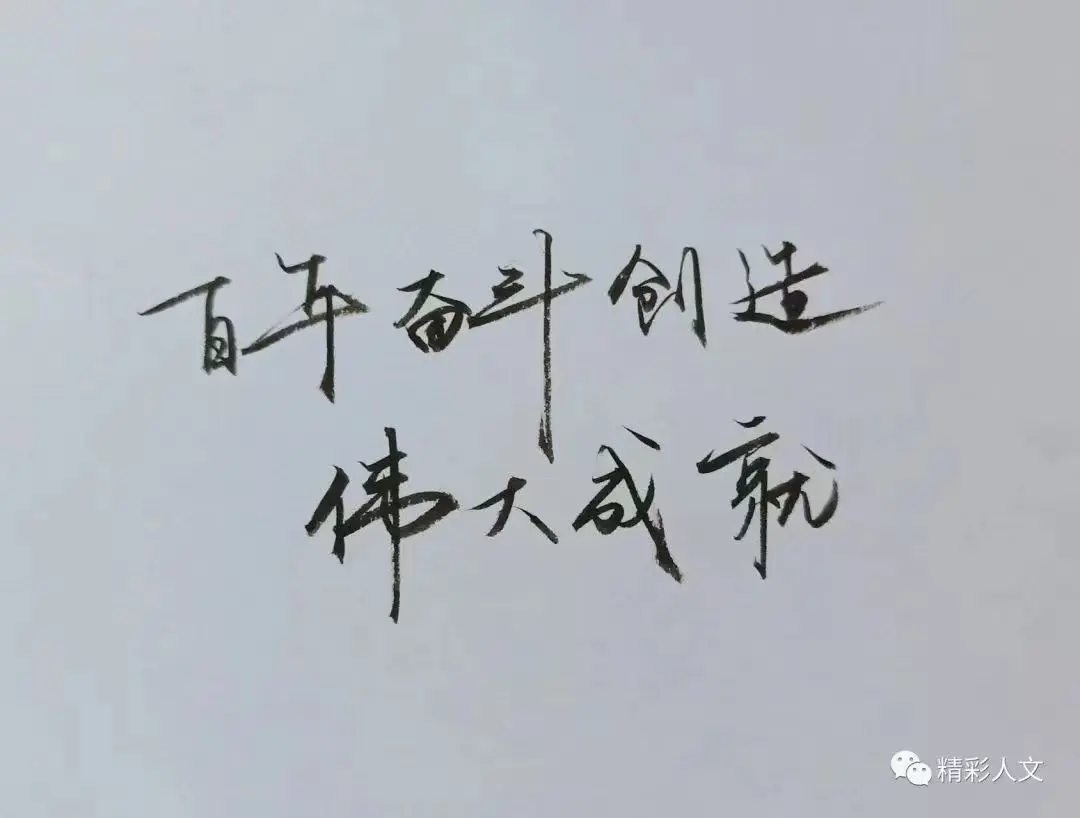 百年奋斗创造
伟大成就
精彩人文